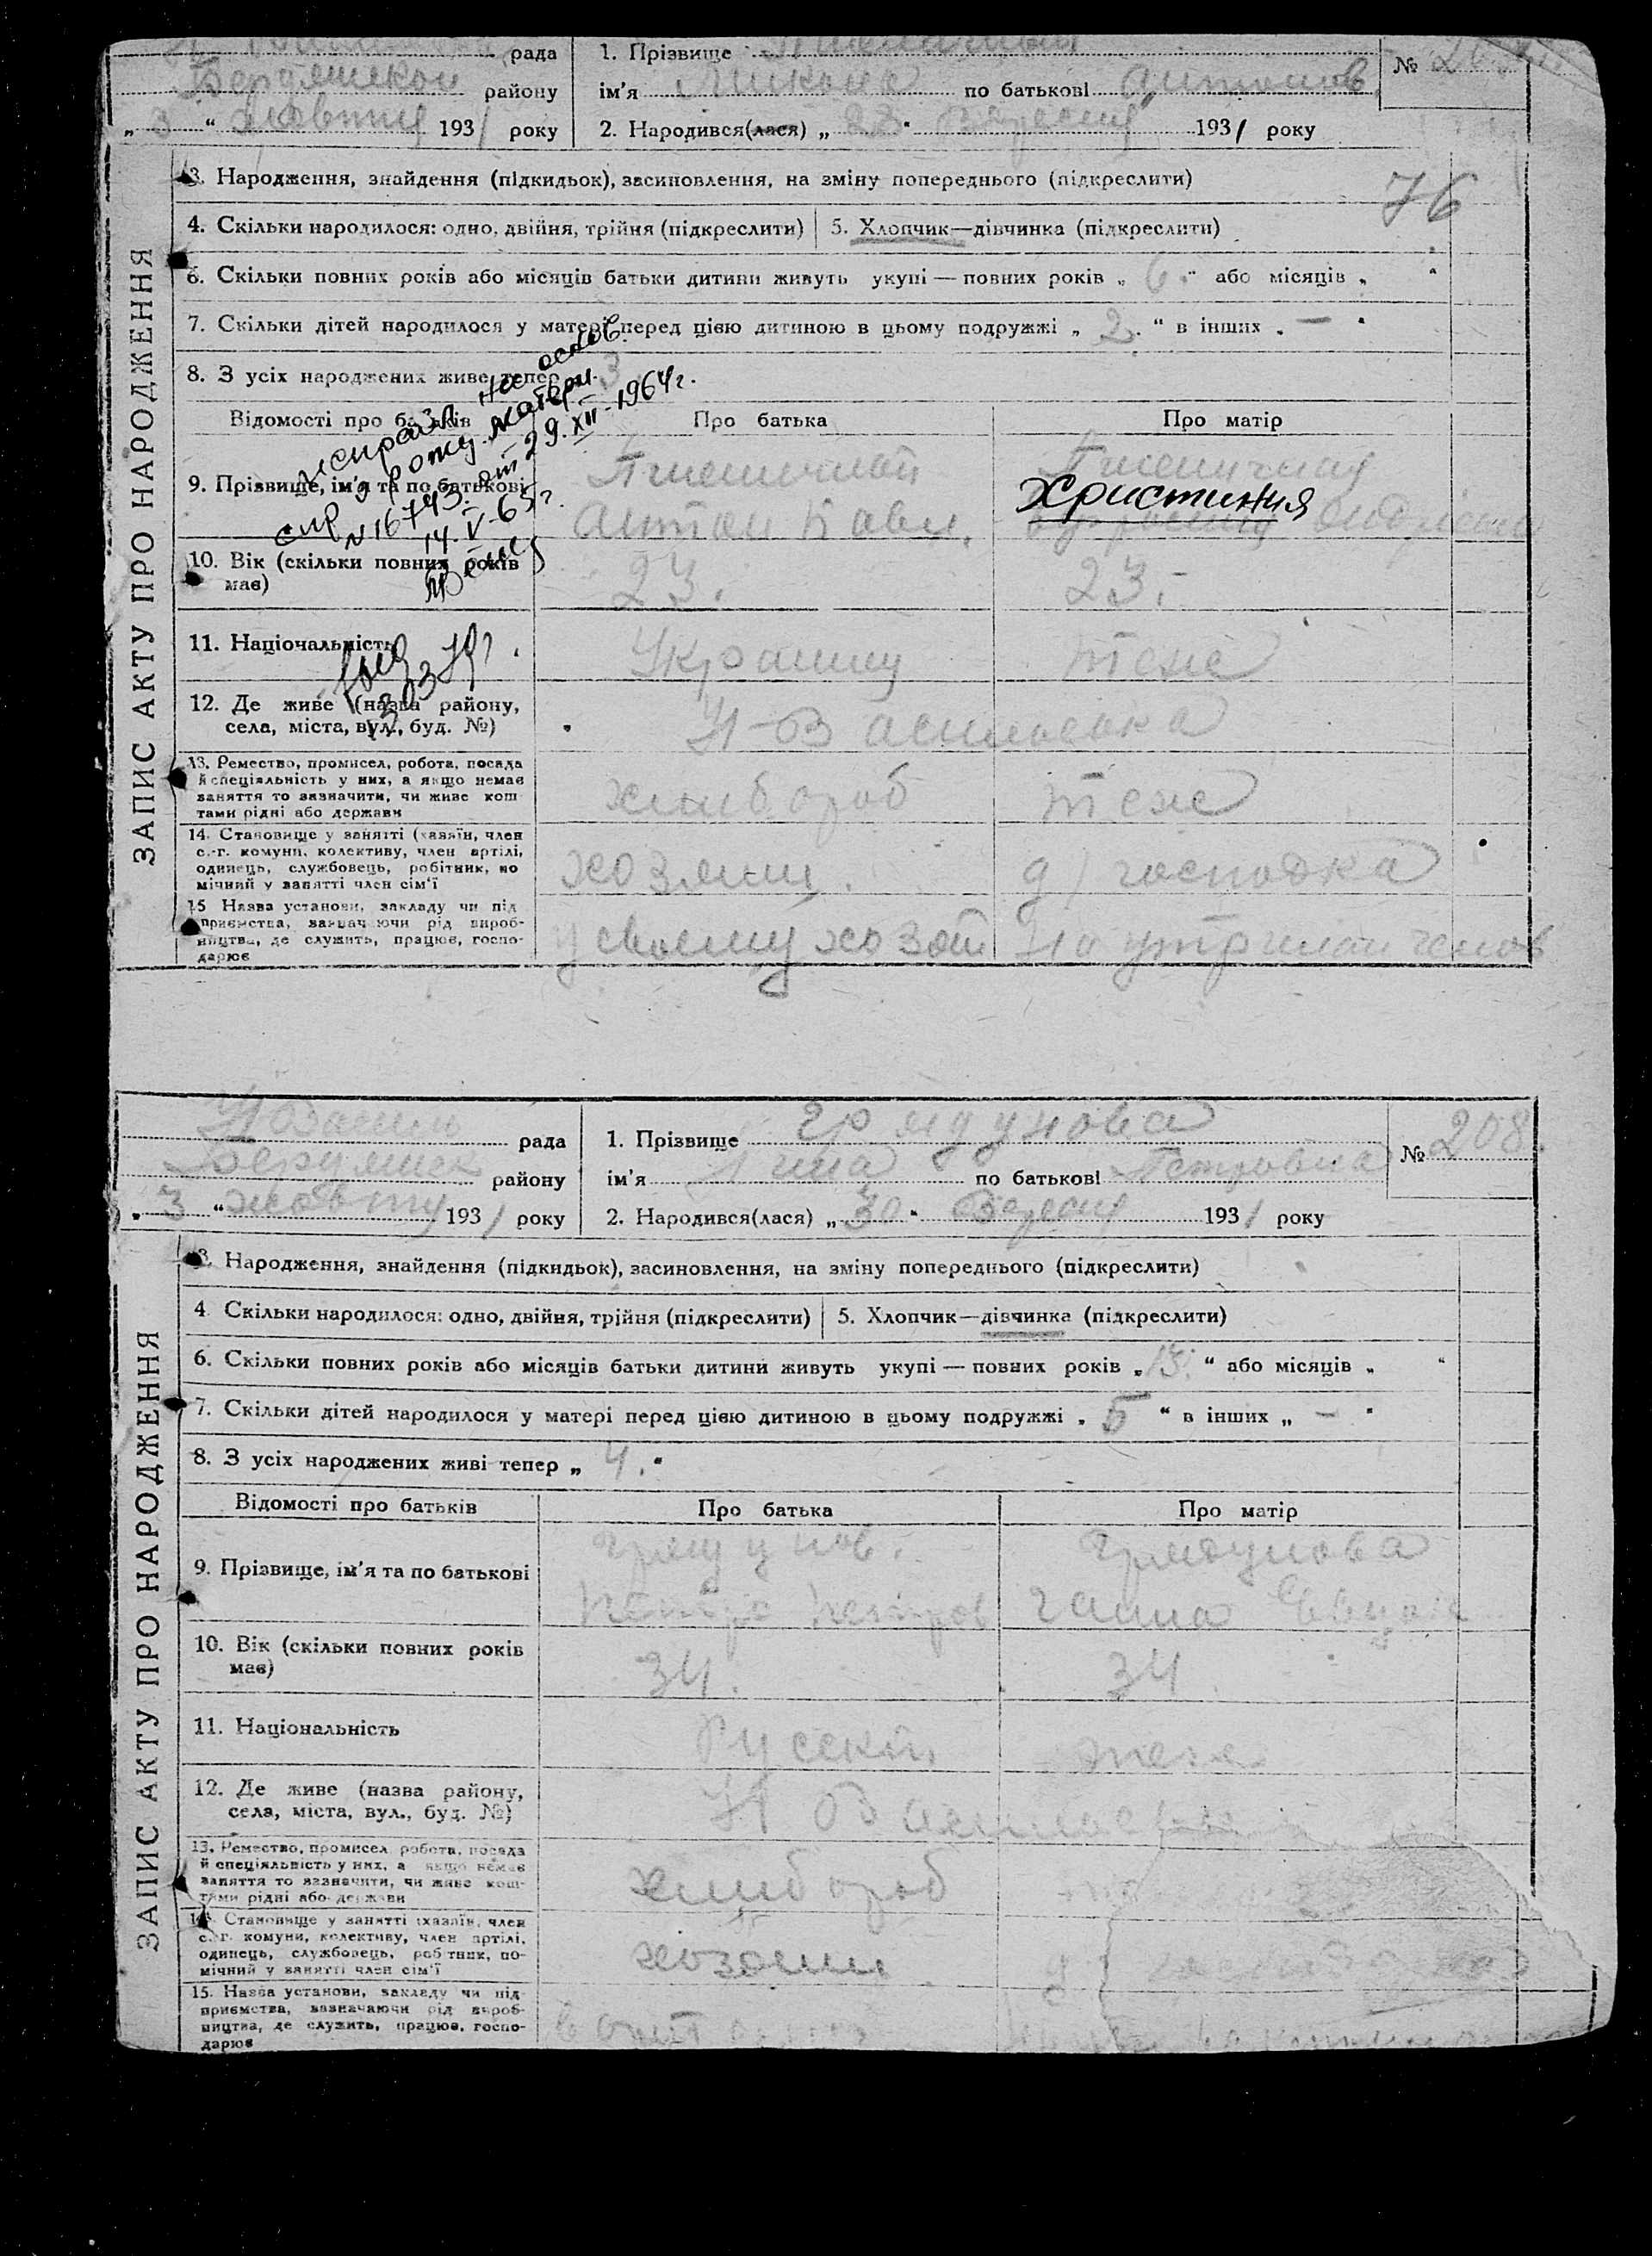 рада
району
„ 3 “ жовтня 1931 року
1. Прізвище
ім'я Микола по батькові Антонов.
2. Народився(лася) „ 23 “ Вересня 1931 року
№
ЗАПИС АКТУ ПРО НАРОДЖЕННЯ
3. Народження, знайдення (підкидьок), засиновлення, на зміну попереднього (підкреслити)
76
4. Скільки народилося: одно, двійня, трійня (підкреслити)
5. Хлопчик—дівчинка (підкреслити)
6. Скільки повних років або місяців батьки дитини живуть укупі — повних років „ 6. “ або місяців „ “
7. Скільки дітей народилося у матері перед цією дитиною в цьому подружжі „ 2. “ в інших „ — “
8. З усіх народжених живе тепер 3
на основ.
матери
№ 16743. от 29. XII-1964г.
14. V-65г.
Відомості про батьків
Про батька
Про матір
9. Прізвище, ім'я та по батькові
Пшеничный
Антон Павл.
Пшеничная
Християния
10. Вік (скільки повних років має)
23.
23.-
11. Національність
Украинец
тоже
12. Де живе (назва району,
села, міста, вул., буд. №)
Н-Васильовка
13. Ремество, промисел, робота, посада
й спеціяльність у них, а якщо немає
заняття то зазначити, чи живе кош-
тами рідні або держави
хлибороб
тоже
14. Становище у занятті (хазяїн, член
с.-г. комуни, колективу, член артілі,
одинець, службовець, робітник, по
мічний у занятті член сім'ї
хозяин.
д/господка
15 Назва установи, закладу чи під
приємства, зазначаючи рід вироб-
ництва, де служить, працює, госпо-
дарює
у своему хозяй
рада
району
„ 3 “ жовтня 1931 року
1. Прізвище Грядунова
ім'я по батькові Петровна
2. Народився(лася) „ 30 “ Вересня 1931 року
№ 208.
ЗАПИС АКТУ ПРО НАРОДЖЕННЯ
3. Народження, знайдення (підкидьок), засиновлення, на зміну попереднього (підкреслити)
4. Скільки народилося: одно, двійня, трійня (підкреслити)
5. Хлопчик—дівчинка (підкреслити)
6. Скільки повних років або місяців батьки дитини живуть укупі — повних років „ 13. “ або місяців „ “
7. Скільки дітей народилося у матері перед цією дитиною в цьому подружжі „ 5 “ в інших „ — “
8. З усіх народжених живі тепер „ 4. “
Відомості про батьків
Про батька
Про матір
9. Прізвище, ім'я та по батькові
Грядунов.
Петро Петров
Грядунова
Ганна
10. Вік (скільки повних років
має)
34.
34.
11. Національність
Русский
тоже
12. Де живе (назва району,
села, міста, вул., буд. №)
Н Васильовка
13. Ремество, промисел, робота, посада
й спеціяльність у них, а якщо немає
заняття то зазначити, чи живе кош-
тами рідні або держави
хлибороб
14. Становище у занятті (хазяїн, член
с.-г. комуни, колективу, член артілі,
одинець, службовець, робітник, по-
мічний у занятті член сім'ї
хозяин
15. Назва установи, закладу чи під
приємства, зазначаючи рід вироб-
ництва, де служить, працює, госпо-
дарює